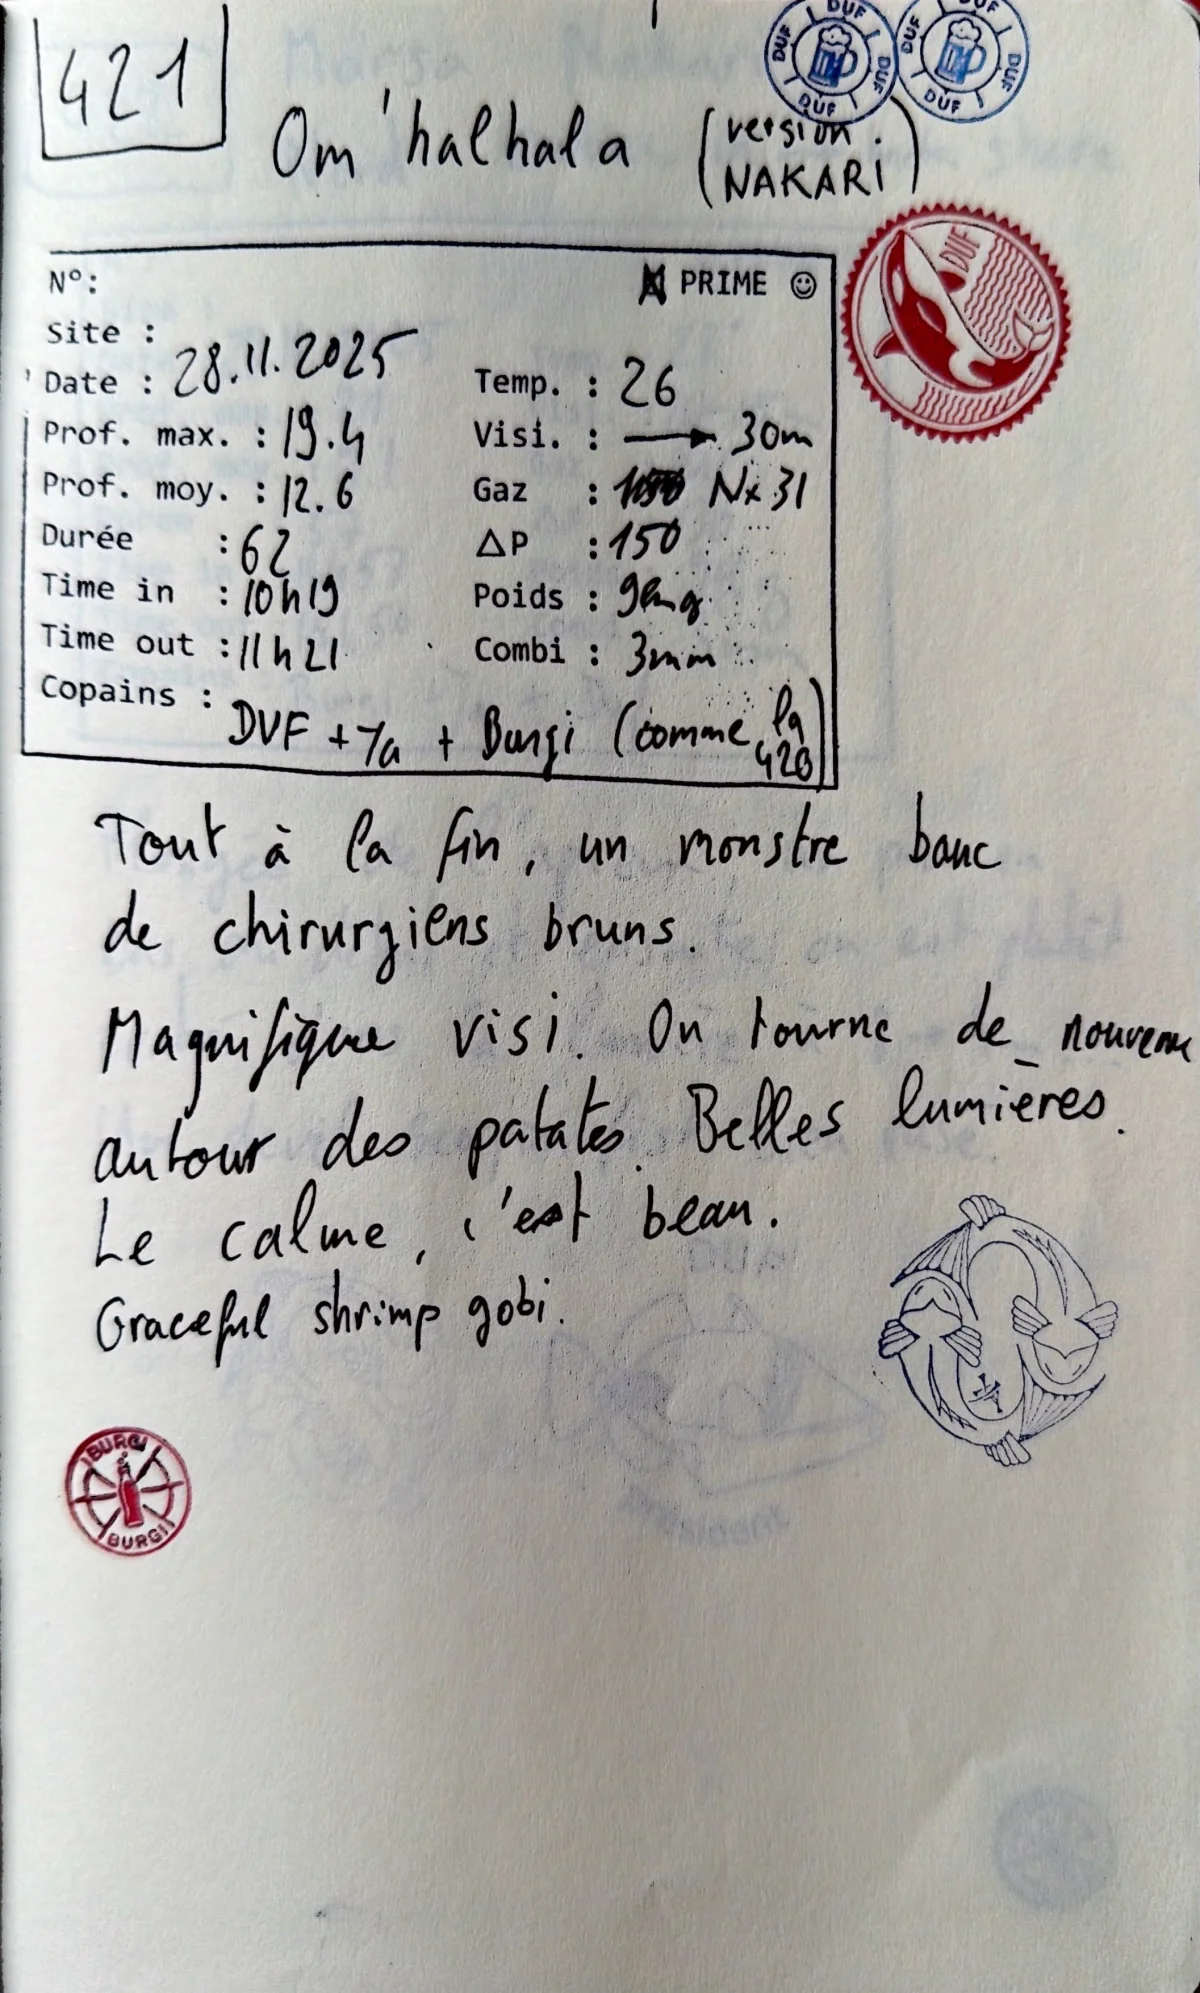 421
Om'halhala (version NAKARI)
N°: PRIME ☺
Site :
Date : 28.11.2025
Temp. : 26
Prof. max. : 19.4
Visi. : → 30m
Prof. moy. : 12.6
Gaz : Nx 31
Durée : 62
ΔP : 150
Time in : 10h19
Poids : 9kg
Time out : 11h21
Combi : 3mm
Copains : DUF + Ya + Burgi (comme la 420)
Tout à la fin, un monstre banc
de chirurgiens bruns.
Magnifique visi. On tourne de nouveau
autour des patates. Belles lumières.
Le calme, c'est beau.
Graceful shrimp gobi.
DUF DUF DUF DUF
DUF DUF DUF
DUF
BURGI
BURGI